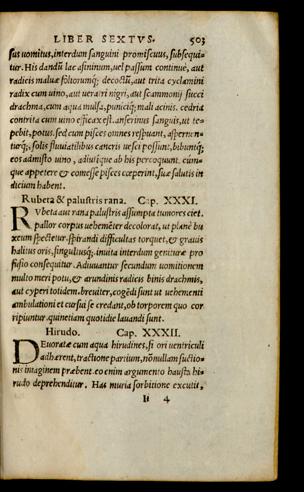 LIBER SEXTVS. 503
sus uomitus, interdum sanguini promiscuus, subsequi-
tur. His dandū lac asininum, uel passum continuè, aut
radicis maluæ decoctū, aut trita cyclamini
radix cum uino, aut ueratri nigri, aut scammonij succi
drachma, cum aqua mulsa, puniciq; mali acinis. cedria
contrita cum uino efficax est. anserinus sanguis, ut te-
pebit, potus. sed cum pisces omnes respuant, aspernen-
turq;, solis fluuiatilibus cancris uesci possunt, bibuntq;
eos admisto uino, adiutique ab his percoquunt. cùm-
que appetere & comesse pisces cœperint, suæ salutis in
dicium habent.
Rubeta & palustris rana. Cap. XXXI.
RVbeta aut rana palustris assumpta tumores ciet.
pallor corpus uehemēter decolorat, ut planè bu
xeum spectetur. spirandi difficultas torquet, & grauis
halitus oris, singultusq;. inuita interdum genituræ pro
fusio consequitur. Adiuuantur secundum uomitionem
multo meri potu, & arundinis radicis binis drachmis,
aut cyperi totidem. breuiter, cogēdi sunt ut uehementi
ambulationi et cursui se credant, ob torporem quo cor
ripiuntur. quinetiam quotidie lauandi sunt.
Hirudo. Cap. XXXII.
DEuoratæ cum aqua hirudines, si ori uentriculi
adhærent, tractione partium, nōnullam suctio-
nis imaginem præbent. eo enim argumento hausta hi-
rudo deprehenditur. Has muria sorbitione excutit,
Ii 4